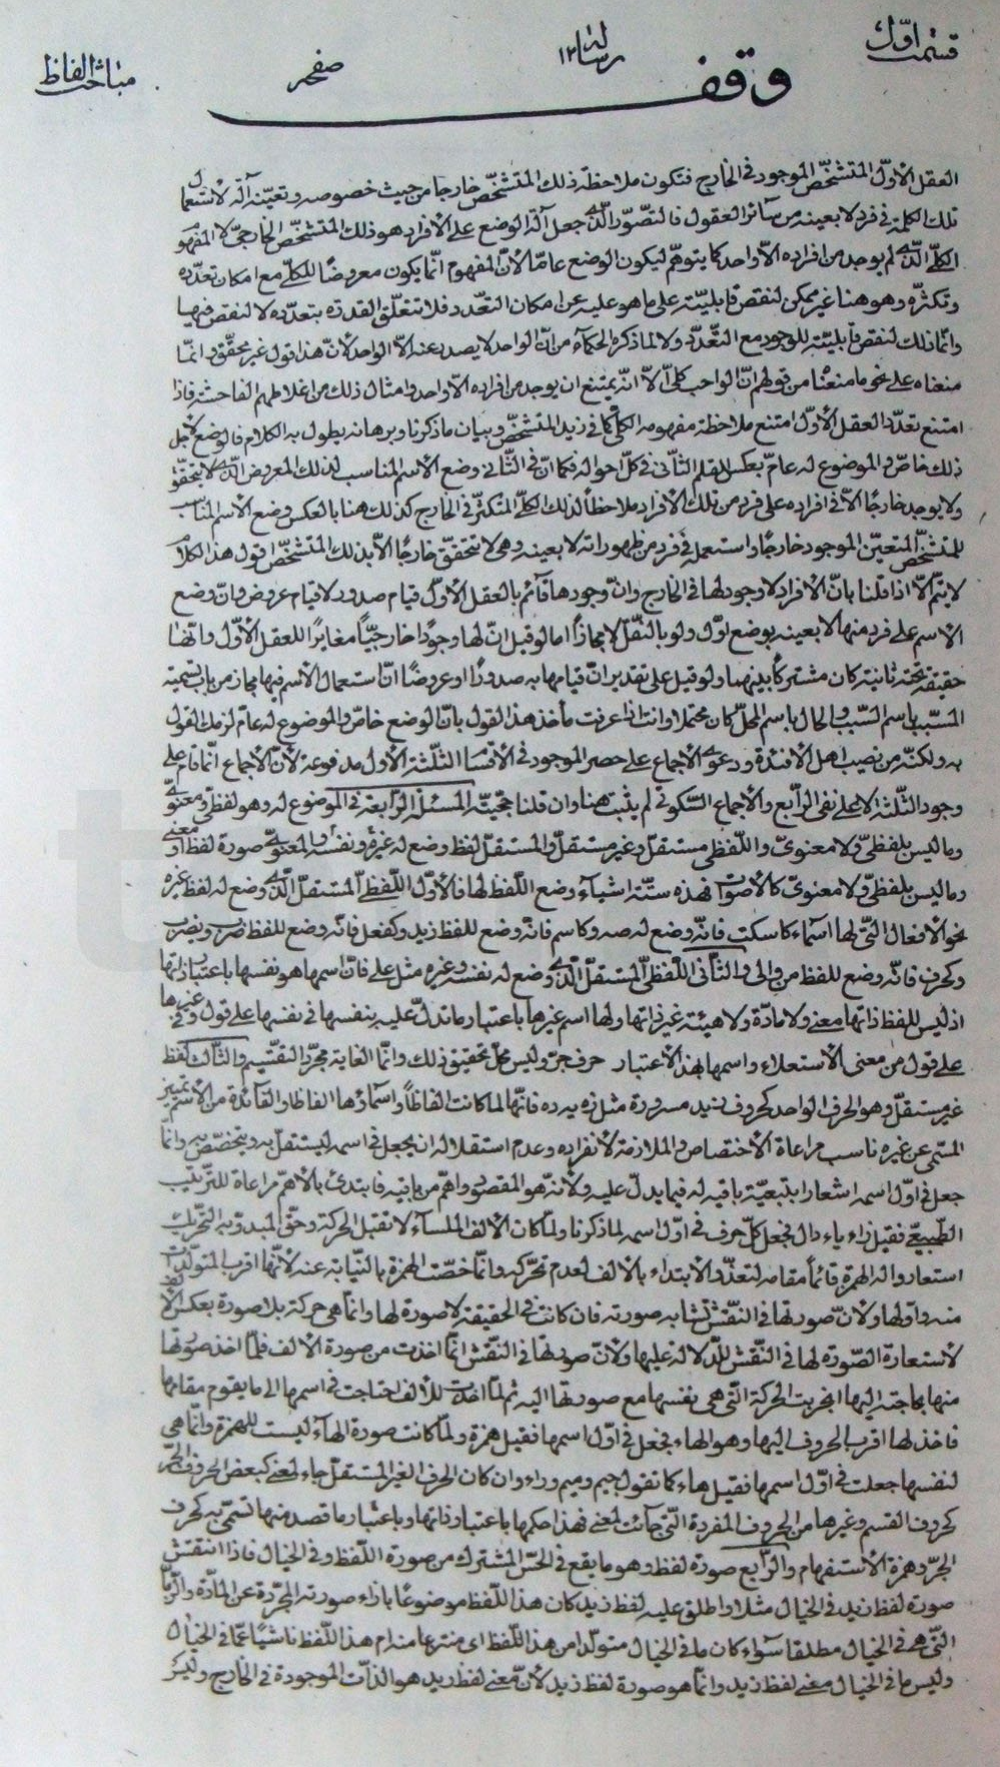 قسمت اوّل
رسالة ١٢
صفحه
مباحث الفاظ
وقف
العقل الأوّل المتشخّص الموجود فى الخارج فتكون ملاحظة ذلك المتشخّص خارجا من حيث خصوصه وتعيّنه آلة لاستعمال
تلك الكلمة فى فرد لا بعينه من سائر العقول فالتصوّر الّذى جعل آلة الوضع على الأفراد هو ذلك المتشخّص الخارجىّ لا المفهوم
الكلّى الّذى لم يوجد من افراده الّا واحد كما يتوهّم ليكون الوضع عامّا لأنّ المفهوم انّما يكون معروضًا للكلّى مع امكان تعدّده
وتكثّره وهو هنا غير ممكن لنقص قابليّته على ما هو عليه عن امكان التعدّد فلا تتعلّق القدرة بتعدّده لا لنقص فيها
وانّما ذلك لنقص قابليّته للوجود مع التعدّد ولا لما ذكره الحكمآء من انّ الواحد لا يصدر عنه الّا الواحد لأنّ هذا قول غير محقّق وانّما
منعناه على نحو ما منعنا من قولهم انّ الواجب كلّى الّا انّه يمتنع ان يوجد من افراده الّا واحد وامثال ذلك من اغلاطهم الفاحشة فاذا
امتنع تعدّد العقل الأوّل امتنع ملاحظة مفهومه الكلّى كما فى زيد المتشخّص وبيان ما ذكرنا وبرهانه يطول به الكلام فالوضع لأجل
ذلك خاصّ والموضوع له عامّ بعكس القلم الثّانى فى كلّ احواله فكما انّ فى الثّانى وضع الأسم المناسب لذلك المعروض الّذى لا يتحقّق
ولا يوجد خارجًا الّا فى افراده على فرد من تلك الأفراد ملاحظاً لذلك الكلّى المتكثّر فى الخارج كذلك هنا بالعكس وضع الأسم المناسب
للمتشخّص المتعيّن الموجود خارجًا واستعمل فى فرد من ظهوراته لا بعينه وهى لا تتحقّق خارجًا الّا بذلك المتشخّص اقول هذا الكلام
لا يتمّ الّا اذا قلنا بانّ الأفراد لا وجود لها فى الخارج وانّ وجودها قآئم بالعقل الأوّل قيام صدور لا قيام عروض وانّ وضع
الأسم على فرد منها لا بعينه بوضع اوّل ولو بالنّقل لا مجازاً امّا لو قيل انّ لها وجودًا خارجيّاً مغايرًا للعقل الأوّل وانّها
حقيقة تحته ثانية كان مشتركاً بينهما ولو قيل على تقدير انّ قيامها به صدورًا او عروضًا انّ استعمال الأسم فيها مجاز من باب تسمية
المسبّب باسم السّبب والحال باسم المحلّ كان محتملا وانت اذا عرفت مأخذ هذا القول بانّ الوضع خاصّ والموضوع له عامّ لزمك القول
به ولكنّه من نصيب اهل الأفئدة ودعوى الأجماع على حصر الموجود فى الأقسام الثّلثة الأول مدفوعة لأنّ الأجماع انّما قام على
وجود الثّلثة لا على نفى الرّابع والأجماع السّكوتى لم يثبت هنا وان قلنا بحجّيّته المسئلة الرّابعة فى الموضوع له وهو لفظىّ ومعنوىّ
وما ليس بلفظىّ ولا معنوىّ واللّفظى مستقلّ وغير مستقلّ والمستقلّ لفظ وضع له غيره ونفسه والمعنوىّ صورة لفظ او معنى
وما ليس بلفظىّ ولا معنوىّ كالأصوات فهذه ستّة اشيآء وضع اللّفظ لها فالأوّل اللّفظى المستقلّ الّذى وضع له لفظ غيره
نحو الأفعال الّتى لها اسمآء كاسكت فانّه وضع له صه وكاسم فانّه وضع للفظ زيد وكفعل فانّه وضع للفظ ضرب ويضرب
وكحرف فانّه وضع للفظ من والى والثّانى اللّفظى المستقلّ الّذى وضع له نفسه وغيره مثل على فانّ اسمها هو نفسها باعتبار ذاتها
اذ ليس للفظ ذاتها معنى ولا مادّة ولا هيئة غير ذاتها ولها اسم غيرها باعتبار ما تدلّ عليه بنفسها فى نفسها على قول وفى غيرها
على قول من معنى الأستعلاء واسمها بهذا الأعتبار حرف جرّ وليس محلّ تحقيق ذلك وانّما الغاية مجرّد التقسّيم والثّالث لفظ
غير مستقلّ وهو الحرف الواحد كحروف زيد مسرودة مثل زه يه ده فانّها لمّا كانت الفاظاً واسمآؤها الفاظا والفآئدة من الأسم تمييز
المسمّى عن غيره ناسب مراعاة الأختصاص والملازمة لأنفراده وعدم استقلاله ان يجعل فى اسمه ليستقلّ به ويتخصّص به وانّما
جعل فى اوّل اسمه اشعارا بتبعيّة باقيه له فيما يدلّ عليه ولأنّه هو المقصود واهمّ من باقيه فابتدئ بالأهمّ مراعاة للتّرتيب
الطّبيعىّ فقيل زاء ياء دال فجعل كلّ حرف فى اوّل اسمه لما ذكرنا ولمّا كان الألف الملسآء لا تقبل الحركة وحقّ المبدوّ به التّحريك
استعاروا له الهمزة قائماً مقامه لتعذّر الأبتداء بالألف لعدم تحرّكه وانّما خصّت الهمزة بالنّيابة عنه لأنّها اقرب المتولّدات
منه واوّلها ولأنّ صورتها فى النّقش تشابه صورته فان كانت فى الحقيقة لا صورة لها وانّما هى حركة بلا صورة بعكس الألف
لأستعارة الصّورة لها فى النّقش للّدلالة عليها ولأنّ صورتها فى النّقش انّما اخذت من صورة الألف فلمّا اخذ صورتها
منها لحاجته اليها انجرّت الحركة الّتى هى نفسها مع صورتها اليه ثم لمّا اخذت للألف احتاجت فى اسمها الى ما يقوم مقامها
فاخذ لها اقرب الحروف اليها وهو الهاء فجعل فى اوّل اسمها فقيل همزة ولمّا كانت صورة الهآء ليست للهمزة وانّما هى
لنفسها جعلت فى اوّل اسمها فقيل هاء كما نقول جيم وميم وراء وان كان الحرف الغير المستقلّ جاء لمعنى كبعض الحروف الجرّ
كحروف القسم وغيرها من الحروف المفردة الّتى جآئت لمعنى فهذا حكمها باعتبار ذاتها وباعتبار ما قصد منها تسمّى به كحرف
الجرّ وهمزة الأستفهام والرّابع صورة لفظ وهو ما يقع فى الحسّ المشترك من صورة اللّفظ وفى الخيال فاذا انتقش
صورة لفظ زيد فى الخيال مثلا واطلق عليه لفظ زيد كان هذا اللّفظ موضوعًا بازاء صورته المجرّدة عن المادّة والزّمان
الّتى هى فى الخيال مطلقا سوآء كان ما فى الخيال متولّدا من هذا اللّفظ اى منتزعا منه ام هذا اللّفظ ناشيًا عمّا فى الخيال
وليس ما فى الخيال معنى لفظ زيد وانّما هو صورة لفظ زيد لأنّ معنى لفظ زيد هو الذّات الموجودة فى الخارج وليس